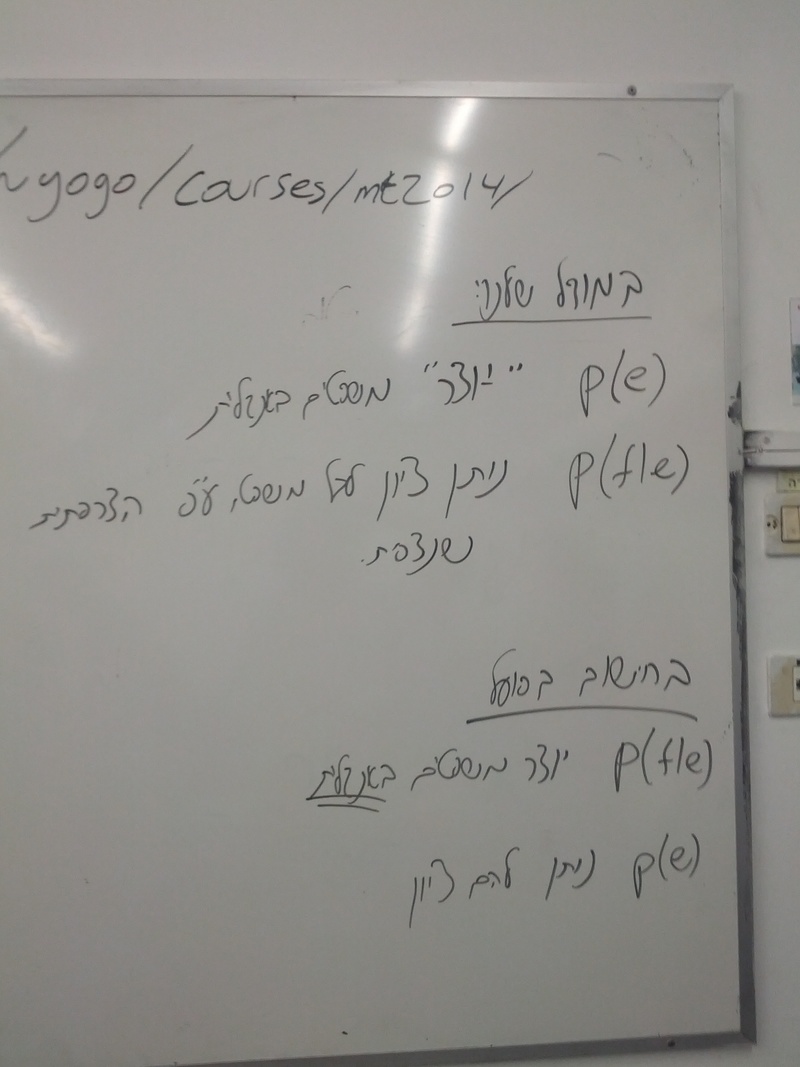 yogo/courses/mt2014/
במודל שלנו:
p(e) "יוצר" משפטים באנגלית
p(f|e) נותן ציון לכל משפט, ע"פ הצרפתית
שנצפית.
בחישוב בפועל
p(f|e) יוצר משפטים באנגלית
p(e) נותן להם ציון